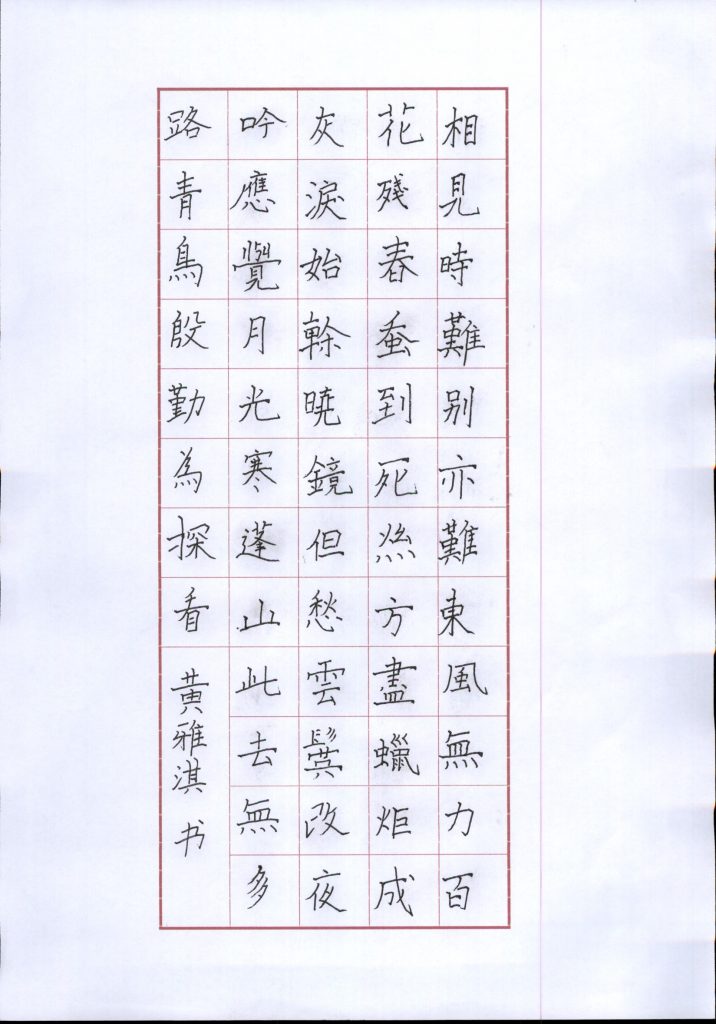 相見時難别亦難東風無力百
花殘春蚕到死絲方盡蠟炬成
灰淚始乾曉鏡但愁雲鬓改夜
吟應覺月光寒蓬山此去無多
路青鳥殷勤為探看
黄雅淇书